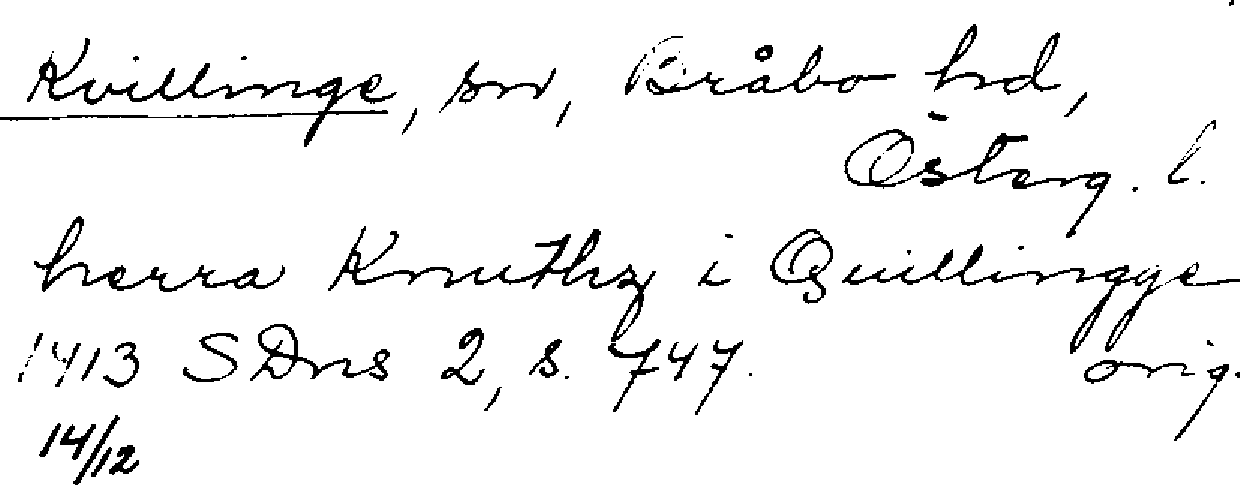 Kvillinge, sn, Bråbo hd,
Österg. l.
herra Knuthz i Quillingge
1413 SDns 2, s. 747. orig.
14/12